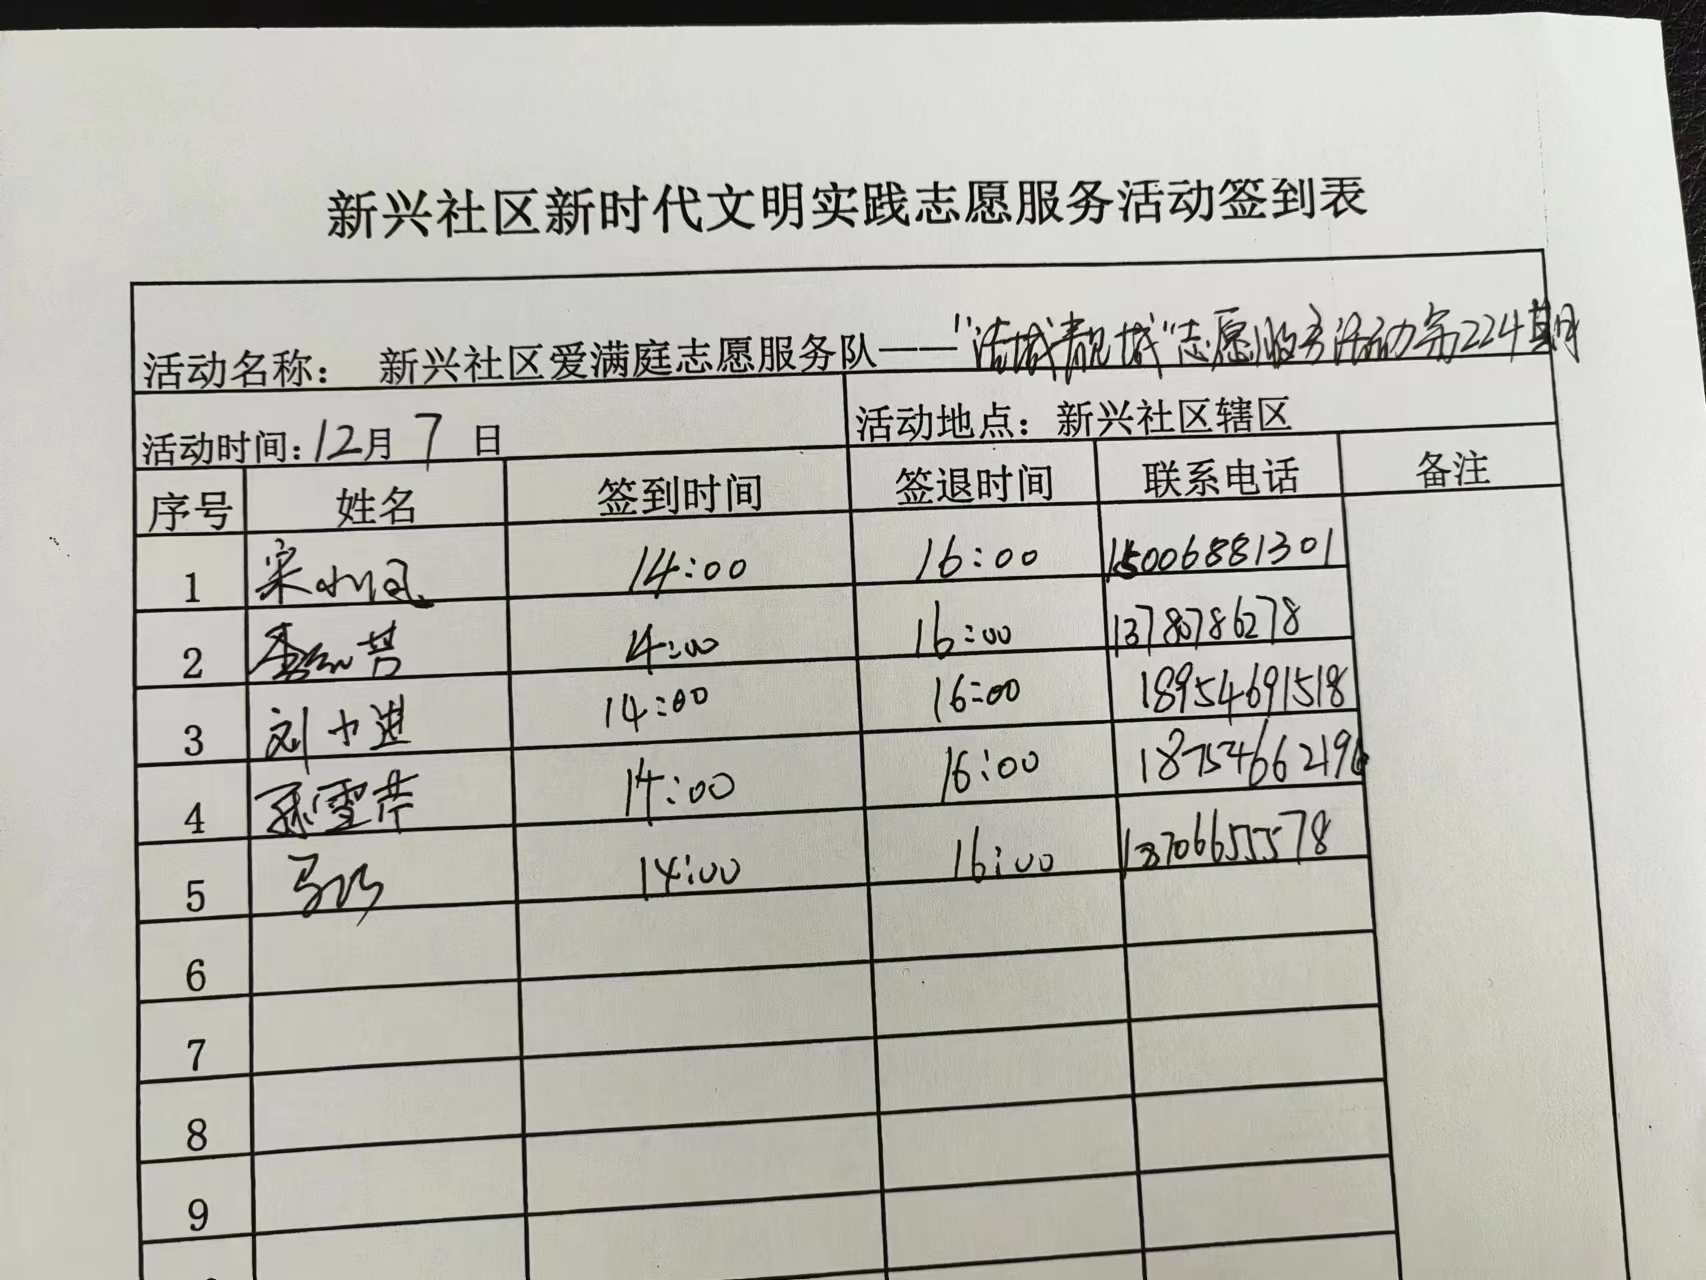 新兴社区新时代文明实践志愿服务活动签到表
活动名称： 新兴社区爱满庭志愿服务队——"洁城靓城"志愿服务活动第224期
活动时间：12月 7 日 活动地点：新兴社区辖区
序号 姓名 签到时间 签退时间 联系电话 备注
1 宋小凤 14:00 16:00 15006881301
2 14:00 16:00 13780786278
3 刘小进 14:00 16:00 18954691518
4 孙雪芹 14:00 16:00 18754662196
5 马巧 14:00 16:00 13706655578
6
7
8
9